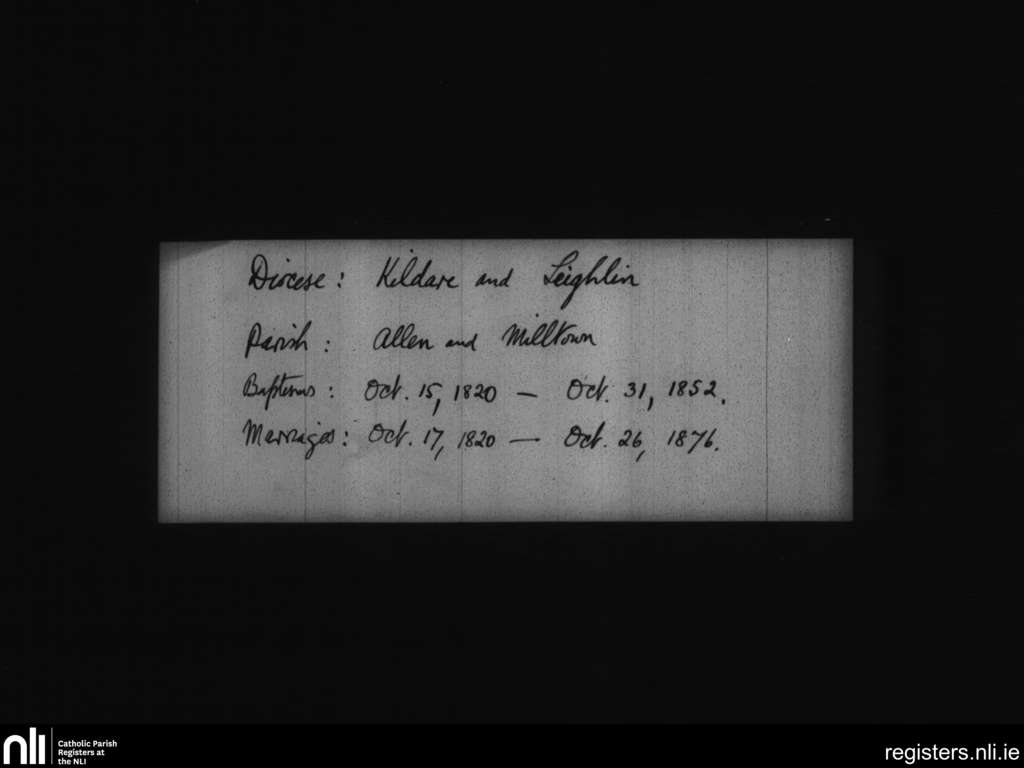 Diocese: Kildare and Leighlin
Parish: Allen and Milltown
Baptisms: Oct. 15, 1820 — Oct. 31, 1852.
Marriages: Oct. 17, 1820 — Oct. 26, 1876.
nli
Catholic Parish
Registers at
the NLI
registers.nli.ie